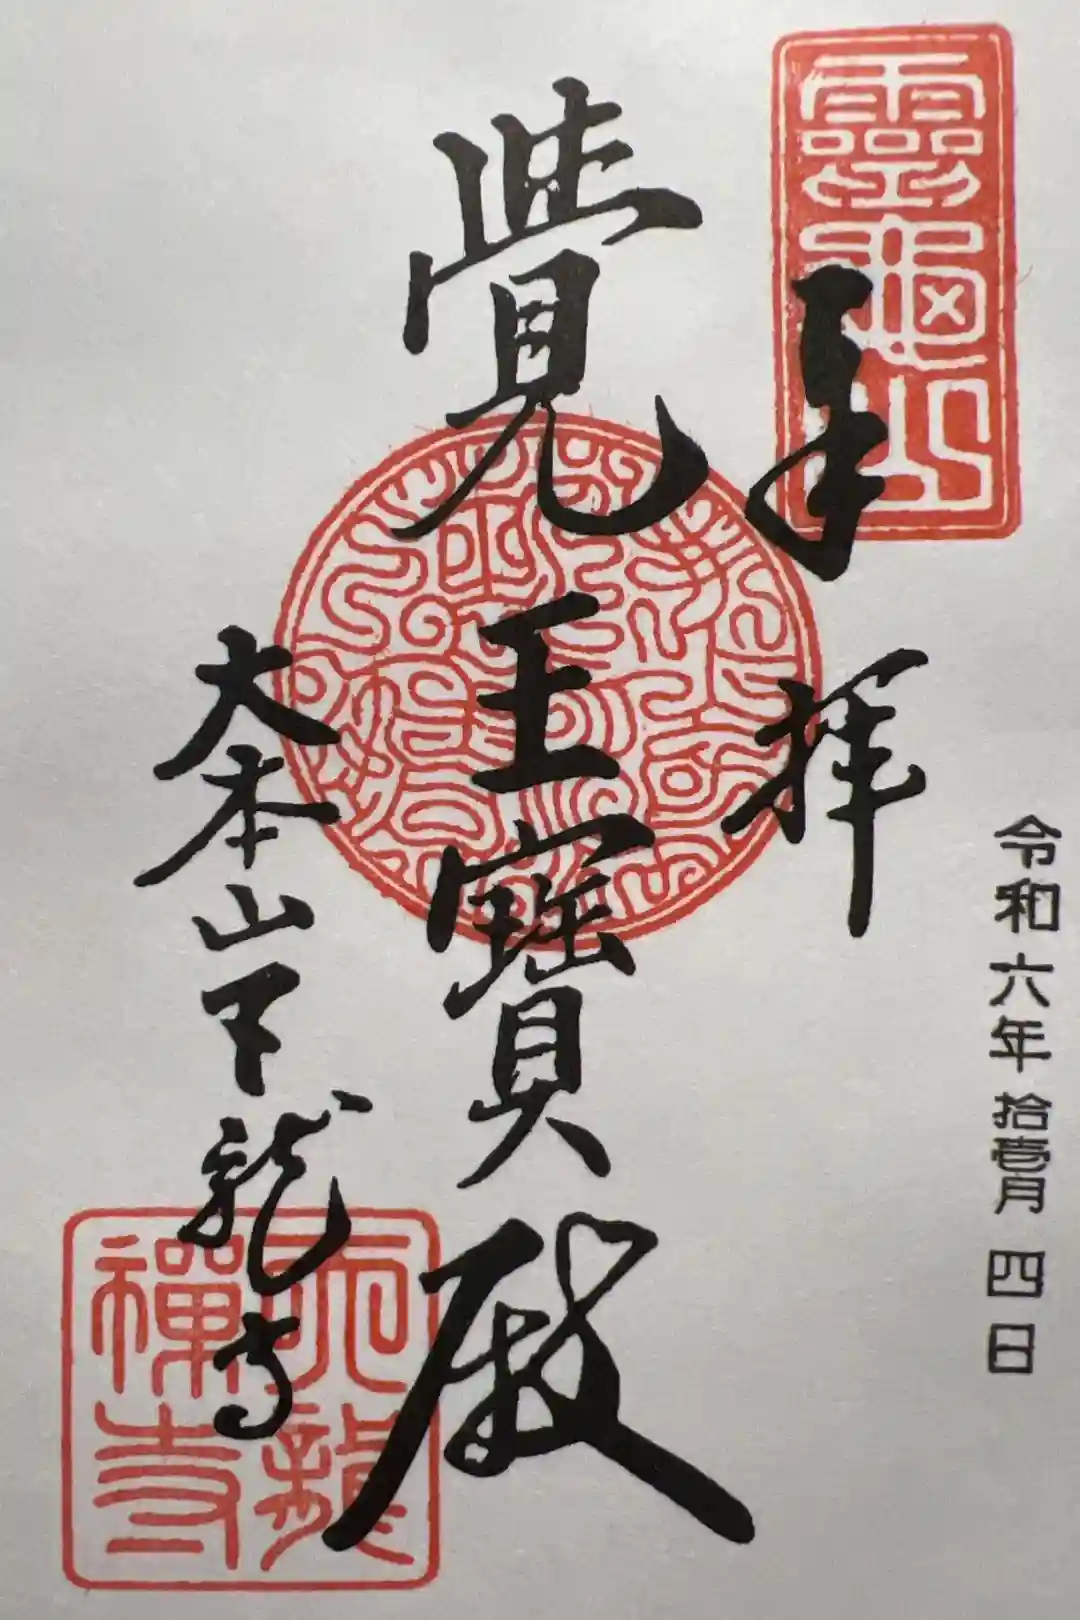 令和六年拾壱月四日
靈龜山
奉拝
覺王寶殿
大本山天龍寺
天龍
禪寺